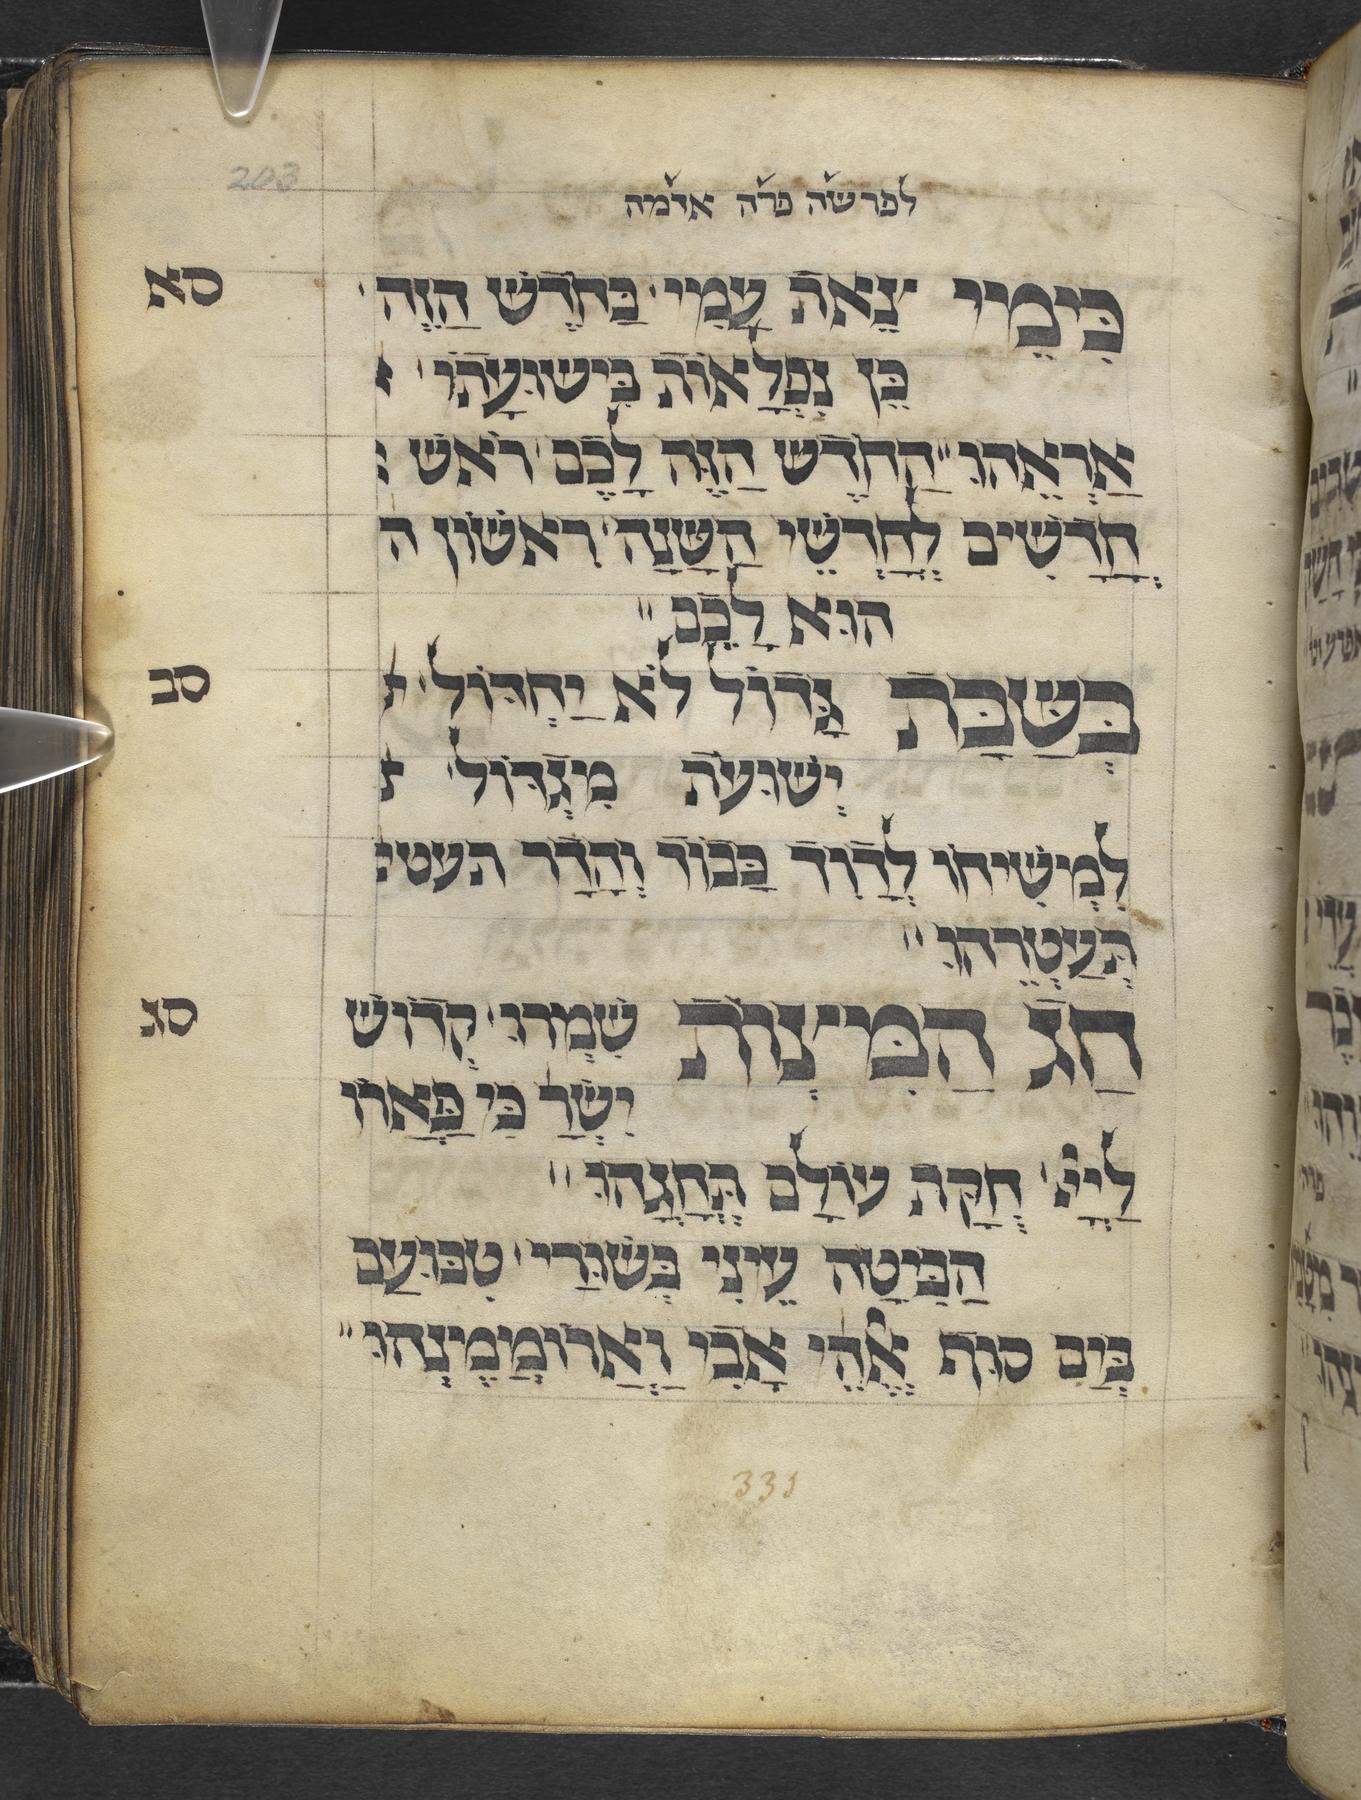 203
לפרשה פרה אדמה
סא
כִּימֵי צֵאת עַמִּי בַּחֹדֶשׁ הַזֶּה
כֵּן נִפְלָאוֹת בִּישׁוּעָתוֹ
אַרְאֶהוּ הַחֹדֶשׁ הַזֶּה לָכֶם רֹאשׁ
חֳדָשִׁים לְחָדְשֵׁי הַשָּׁנָה רִאשׁוֹן ה
הוּא לָכֶם
סב
בְּשַׁבַּת גָּדוֹל לֹא יַחְדּוֹל
יְשׁוּעֹת מִגְדּוֹל
לִמְשִׁיחוֹ לְדָוִד כָּבוֹד וְהָדָר תעטי
תְּעַטְּרֵהוּ
סג
חַג הַמַּצּוֹת שִׁמְרוּ קָדוֹשׁ
יִשְׂרָ כִּי פְּאֵרוֹ
לַיְיָ חֻקַּת עוֹלָם תְּחָגֻּהוּ
הַבִּיטָה עֵינִי בְּשׁוּרַי טֻבּוּעַם
בְּיַם סוּף אֱלֹהֵי אָבִי וַאֲרוֹמְמֶנְהוּ
331